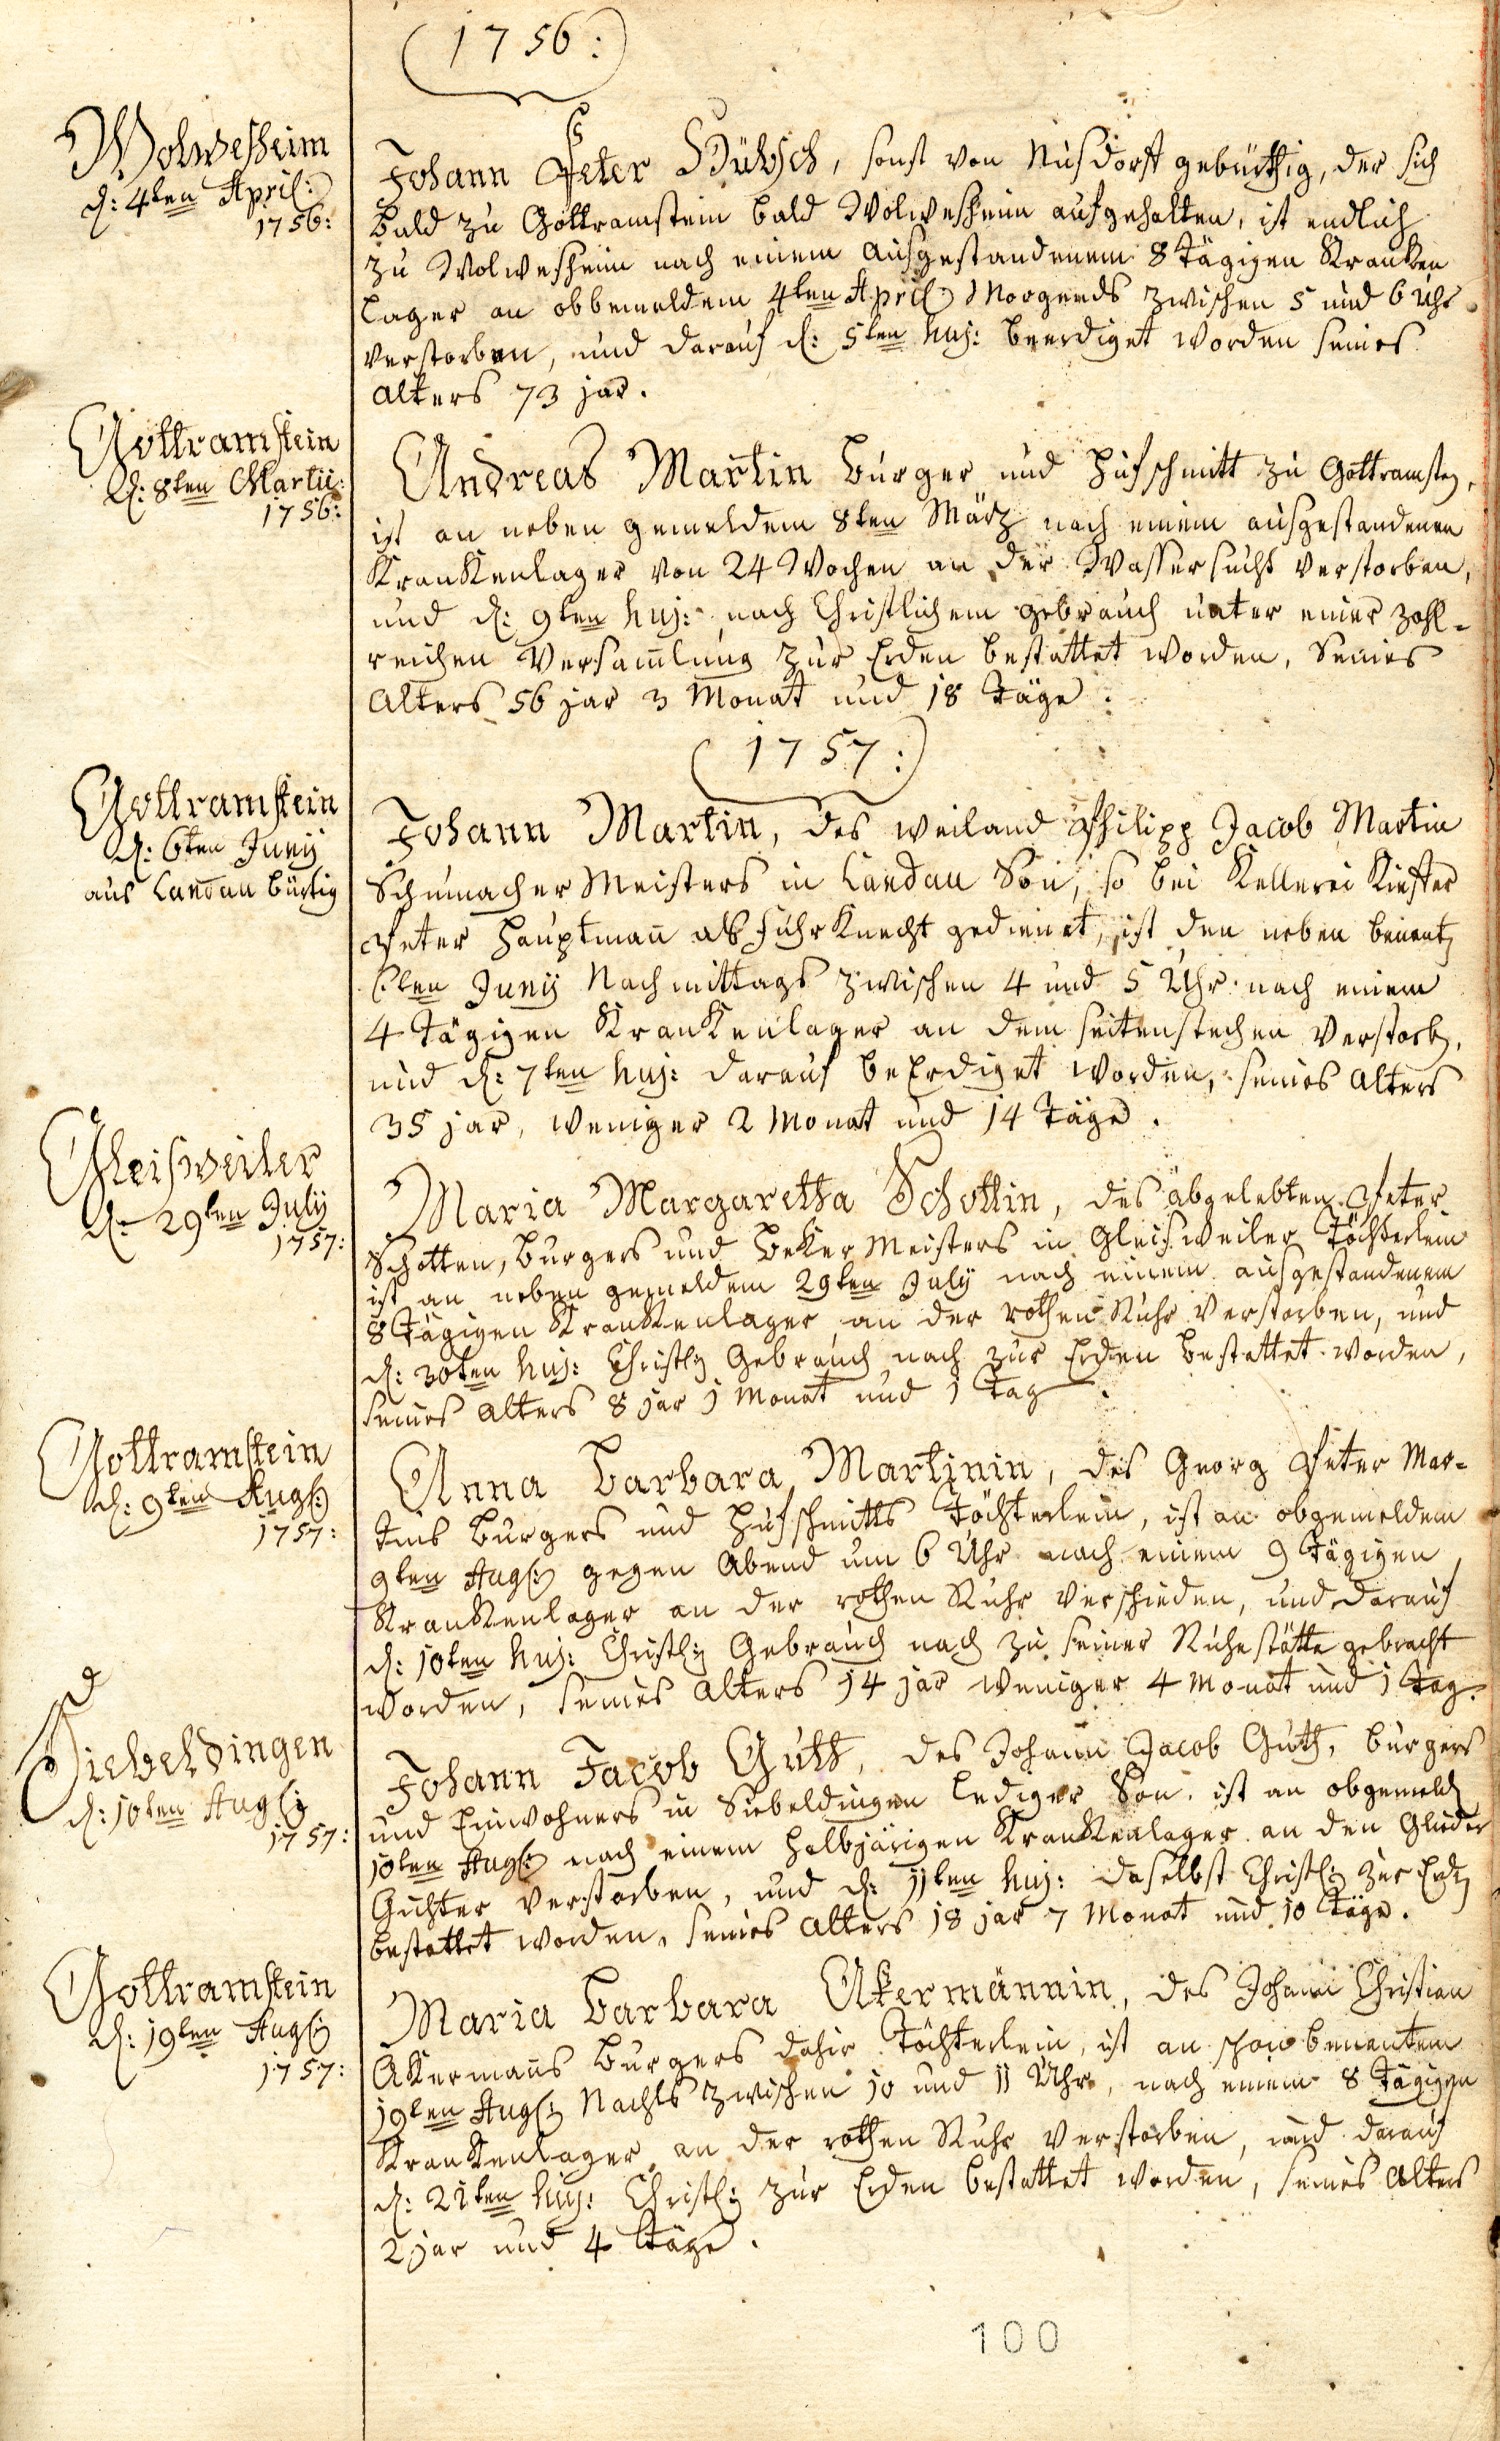 1756:
Wolmesheim
d: 4ten April:
1756:
Johann Peter Hübsch, sonst von Nusdorff gebürthig, der sich
bald zu Gottramstein bald Wolmesheim aufgehalten, ist endlich
zu Wolmesheim nach einem ausgestandenem 8 tägigen Kranken
Lager an obbemeldem 4ten April: Morgends zwischen 5 und 6 Uhr
verstorben, und darauf d: 5ten huj: beerdiget worden seines
alters 73 jar.
Gottramstein
d: 8ten Martii:
1756:
Andreas Martin Burger und Hufschmitt zu Gottramstein,
ist an neben gemeldem 8ten März nach einem ausgestandenen
Krankenlager von 24 Wochen an der Wassersucht verstorben,
und d: 9ten huj: nach Christlichem gebrauch unter einer zahl-
reichen Versam̄lung zur Erden bestattet worden, Seines
Alters 56 jar 3 Monat und 18 Täge.
1757:
Gottramstein
d: 6ten Junij
aus Landau bürtig
Johann Martin, des weiland Philipp Jacob Martin
Schumacher Meisters in Landau Son, so bei Kellerei Küefer
Peter Hauptman̄ als fuhr Knecht gedienet, ist den neben benent
6ten Junij Nachmittags zwischen 4 und 5 Uhr nach einem
4 tägigen Krankenlager an dem seitenstechen verstorb,
und d: 7ten huj: darauf beErdiget worden, seines Alters
35 jar, weniger 2 Monat und 14 Täge.
Gleisweiler
d: 29ten July
1757:
Maria Margaretha Schottin, des abgelebten Peter
Schotten, Burgers und Beker Meisters in Gleisweiler Töchterlein
ist an neben gemeldem 29ten July nach einem ausgestandenem
8 tägigen Krankenlager an der rothen Ruhr verstorben, und
d: 30ten huj: Christl: Gebrauch nach zur Erden bestattet worden,
seines Alters 8 jar 1 Monat und 1 Tag.
Gottramstein
d: 9ten Aug:
1757:
Anna Barbara Martinin, des Georg Peter Mar-
tins Burgers und Hufschmitts Töchterlein, ist an obgemeldem
9ten Aug: gegen Abend um 6 Uhr nach einem 9 tägigen
Krankenlager an der rothen Ruhr verschieden, und darauf
d: 10ten huj: Christl: Gebrauch nach zu seiner Ruhestätte gebracht
worden, seines Alters 14 jar weniger 4 Monat und 1 Tag.
Siebeldingen
d: 10ten Aug:
1757:
Johann Jacob Guth, des Johann Jacob Guth, burgers
und Einwohners in Siebeldingen lediger Son, ist an obgemeld
10ten Aug: nach einem halbjärigen Krankenlager an den Glieder
Gichter verstorben, und d: 11ten huj: daselbst Christl: zur Erd
bestattet worden, seines Alters 18 jar 7 Monat und 10 Täge.
Gottramstein
d: 19ten Aug:
1757:
Maria Barbara Akermännin, des Johann Christian
Akerman̄s Burgers dahir Töchterlein, ist an schon benentem
19ten Aug: Nachts zwischen 10 und 11 Uhr, nach einem 8 tägigen
Krankenlager an der rothen Ruhr verstorben, und darauf
d: 21ten huj: Christl: zur Erden bestattet worden, seines Alters
2 jar und 4 Täge.
100